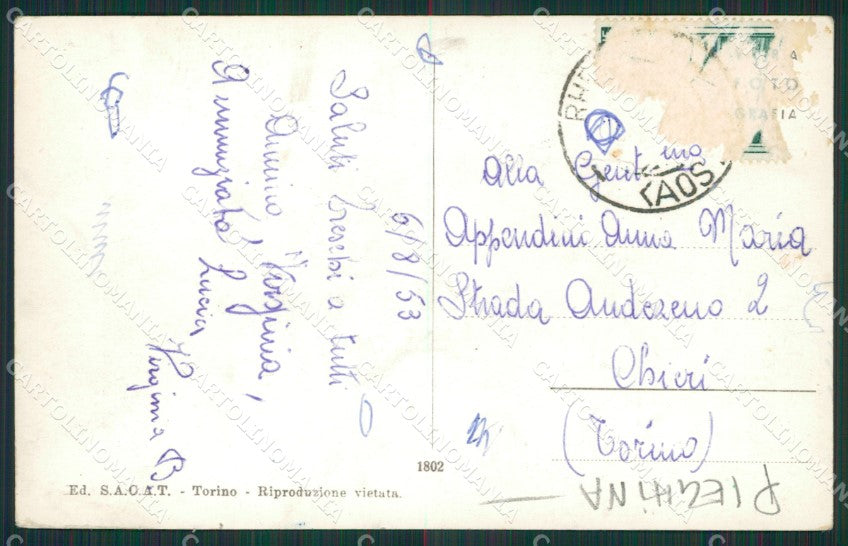 Saluti freschi a tutti
Annino, Virginia,
Annunziata, Lucia
Virginia B
6/8/53
Alla Gent.ma
Appendini Anna Maria
Strada Andezeno 2
Chieri
(Torino)
PIEGHINA
1802
Ed. S.A.C.A.T. - Torino - Riproduzione vietata.
RHE
(AOS
VERA
FOTO
GRAFIA
CARTOLINOMANIA